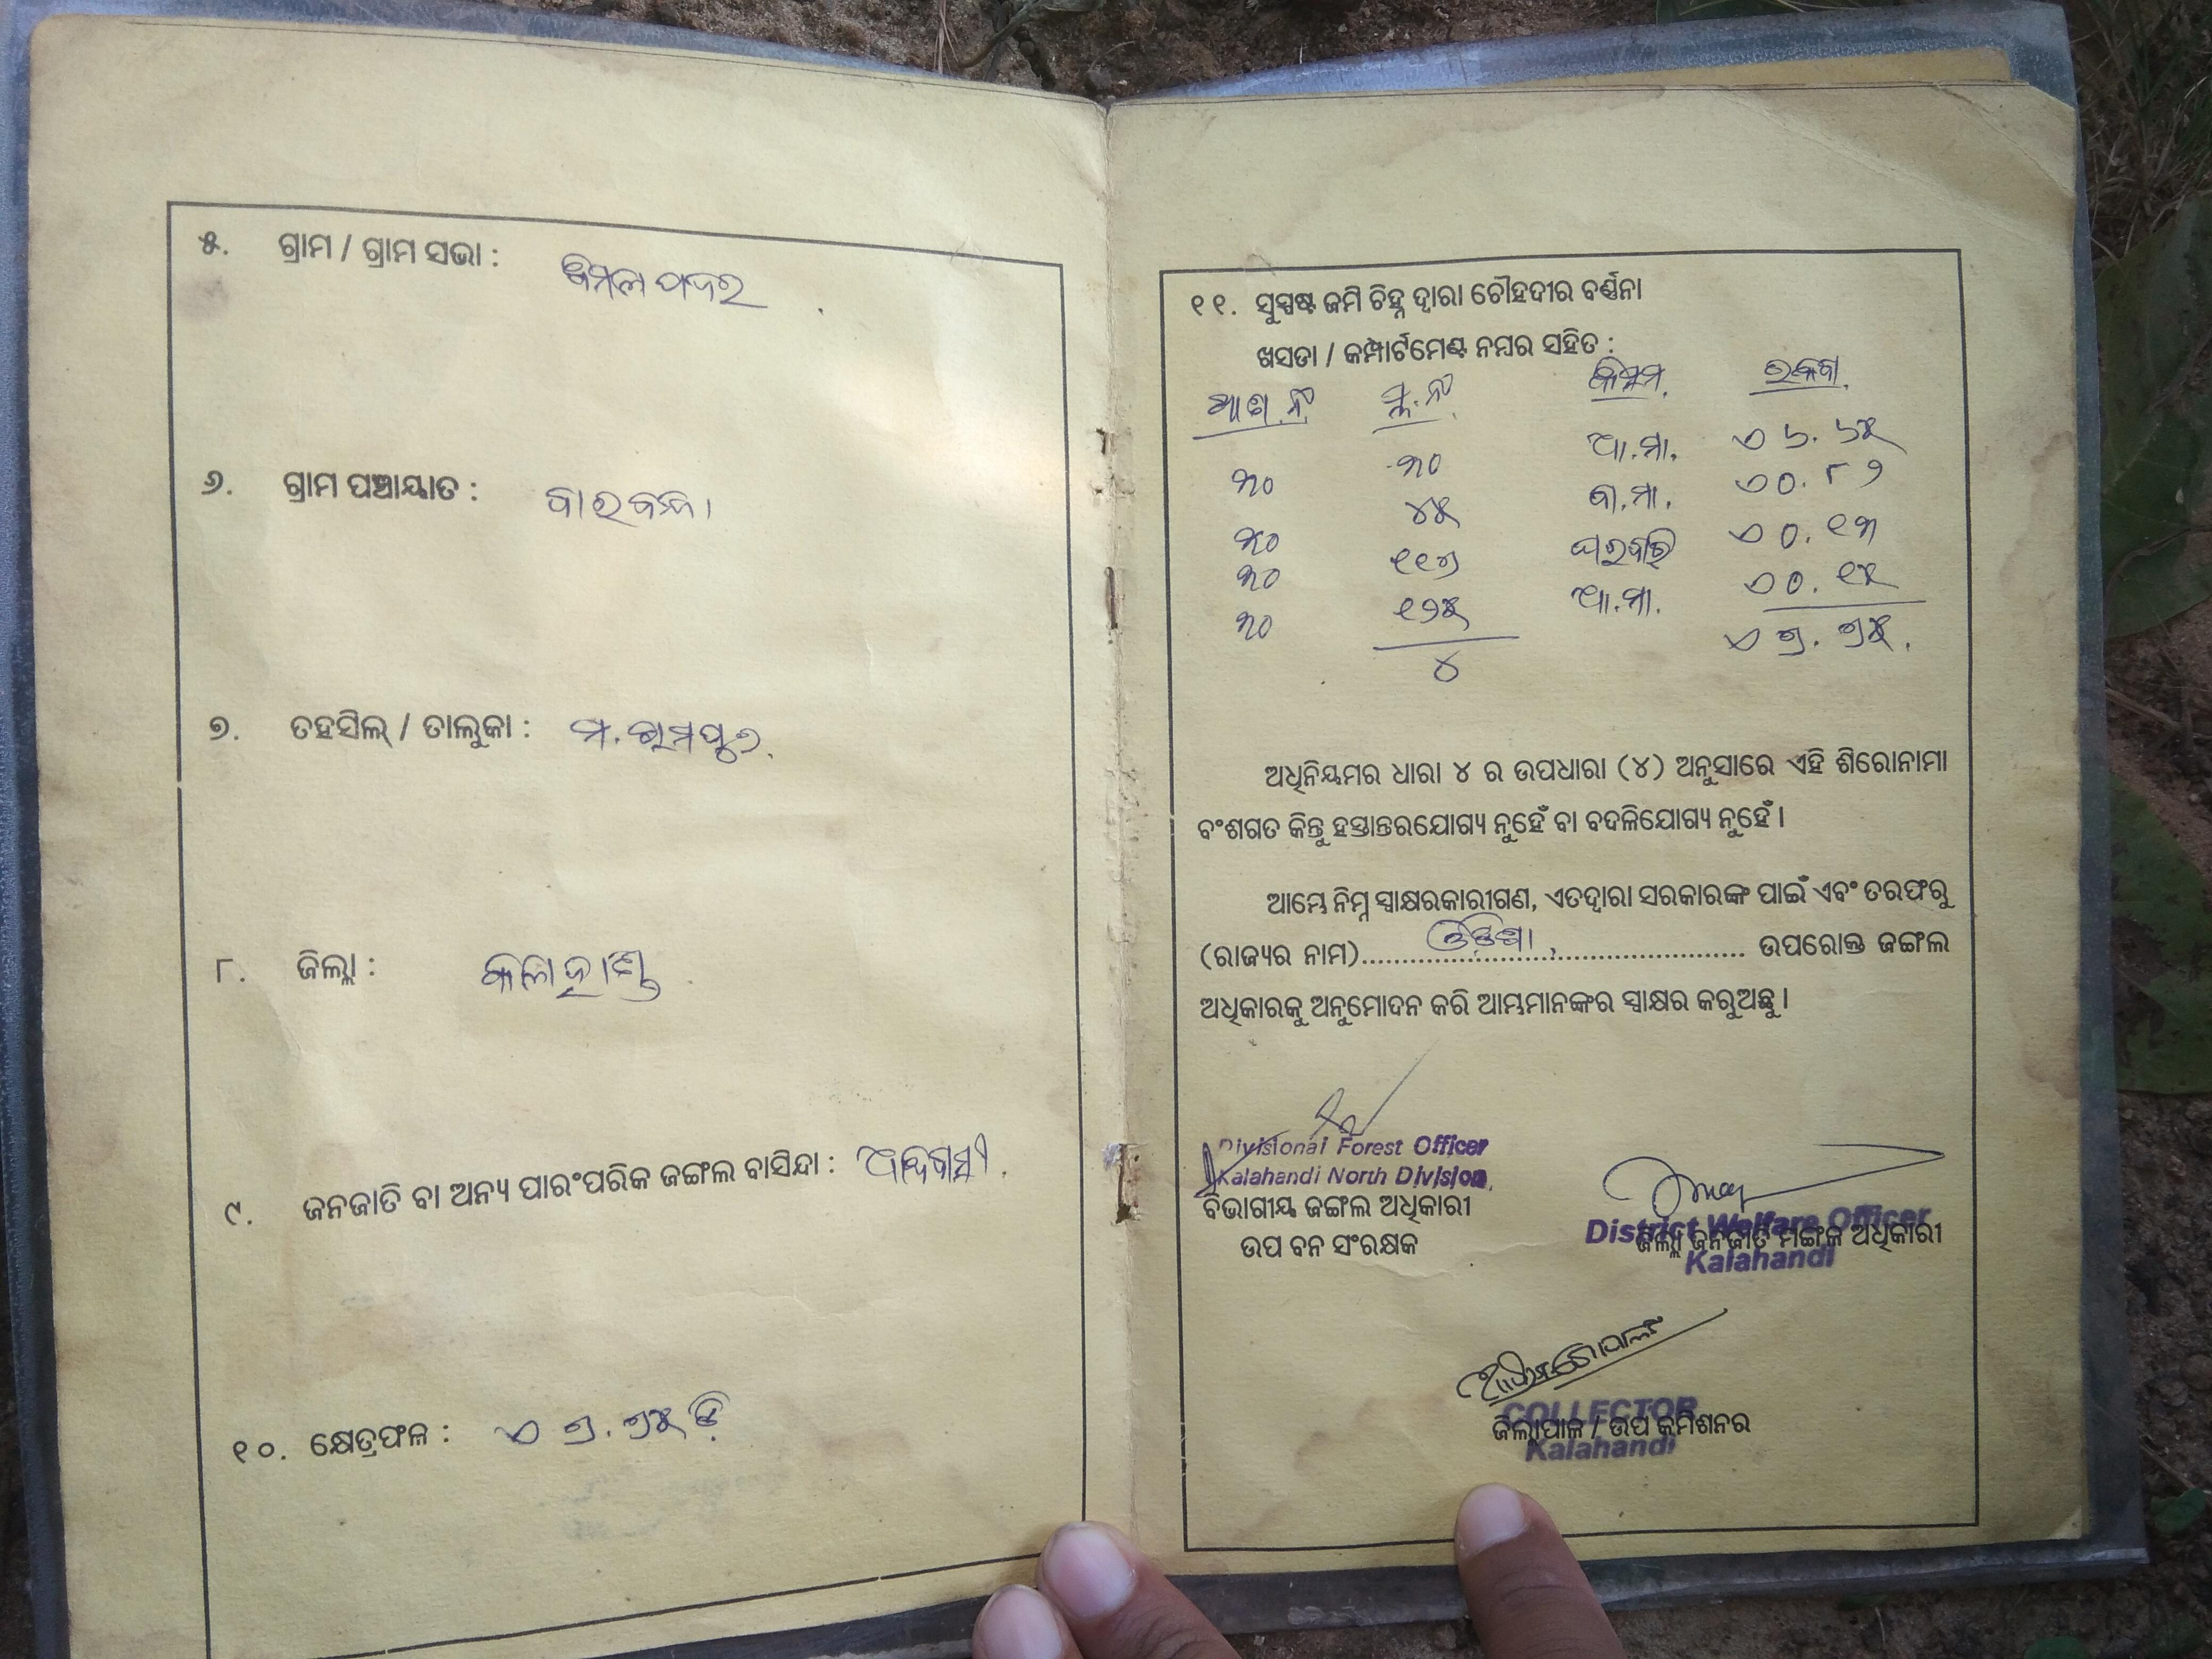 ୫. ଗ୍ରାମ / ଗ୍ରାମ ସଭା :
୬. ଗ୍ରାମ ପଞ୍ଚାୟାତ :
୭. ତହସିଲ୍ / ତାଲୁକା : ମ. ରାମପୁର
୮. ଜିଲ୍ଲା : କଳାହାଣ୍ଡି
୯. ଜନଜାତି ବା ଅନ୍ୟ ପାରଂପରିକ ଜଙ୍ଗଲ ବାସିନ୍ଦା : ଆଦିବାସୀ
୧୦. କ୍ଷେତ୍ରଫଳ :
୧୧. ସୁସ୍ପଷ୍ଟ ଜମି ଚିହ୍ନ ଦ୍ୱାରା ଚୌହଦୀର ବର୍ଣ୍ଣନା
ଖସଡା / କମ୍ପାର୍ଟମେଣ୍ଟ ନମ୍ବର ସହିତ :
ପ୍ଲ.ନଂ କିସମ ରକବା
୩୦ ୩୦ ଆ.ମା.
୩୦ ୪୫ ବା.ମା.
୩୦ ଘରବାରି
୩୦ ୧୨୫ ଆ.ମା.
୪
ଅଧିନିୟମର ଧାରା ୪ ର ଉପଧାରା (୪) ଅନୁସାରେ ଏହି ଶିରୋନାମା
ବଂଶଗତ କିନ୍ତୁ ହସ୍ତାନ୍ତରଯୋଗ୍ୟ ନୁହେଁ ବା ବଦଳିଯୋଗ୍ୟ ନୁହେଁ ।
ଆମ୍ଭେ ନିମ୍ନ ସ୍ୱାକ୍ଷରକାରୀଗଣ, ଏତଦ୍ୱାରା ସରକାରଙ୍କ ପାଇଁ ଏବଂ ତରଫରୁ
(ରାଜ୍ୟର ନାମ)........ଓଡିଶା........ ଉପରୋକ୍ତ ଜଙ୍ଗଲ
ଅଧିକାରକୁ ଅନୁମୋଦନ କରି ଆମ୍ଭମାନଙ୍କର ସ୍ୱାକ୍ଷର କରୁଅଛୁ ।
Divisional Forest Officer
Kalahandi North Division
ବିଭାଗୀୟ ଜଙ୍ଗଲ ଅଧିକାରୀ
ଉପ ବନ ସଂରକ୍ଷକ
District Welfare Officer
ଜିଲ୍ଲା ଜନଜାତି ମଙ୍ଗଳ ଅଧିକାରୀ
Kalahandi
COLLECTOR
ଜିଲ୍ଲାପାଳ / ଉପ କମିଶନର
Kalahandi